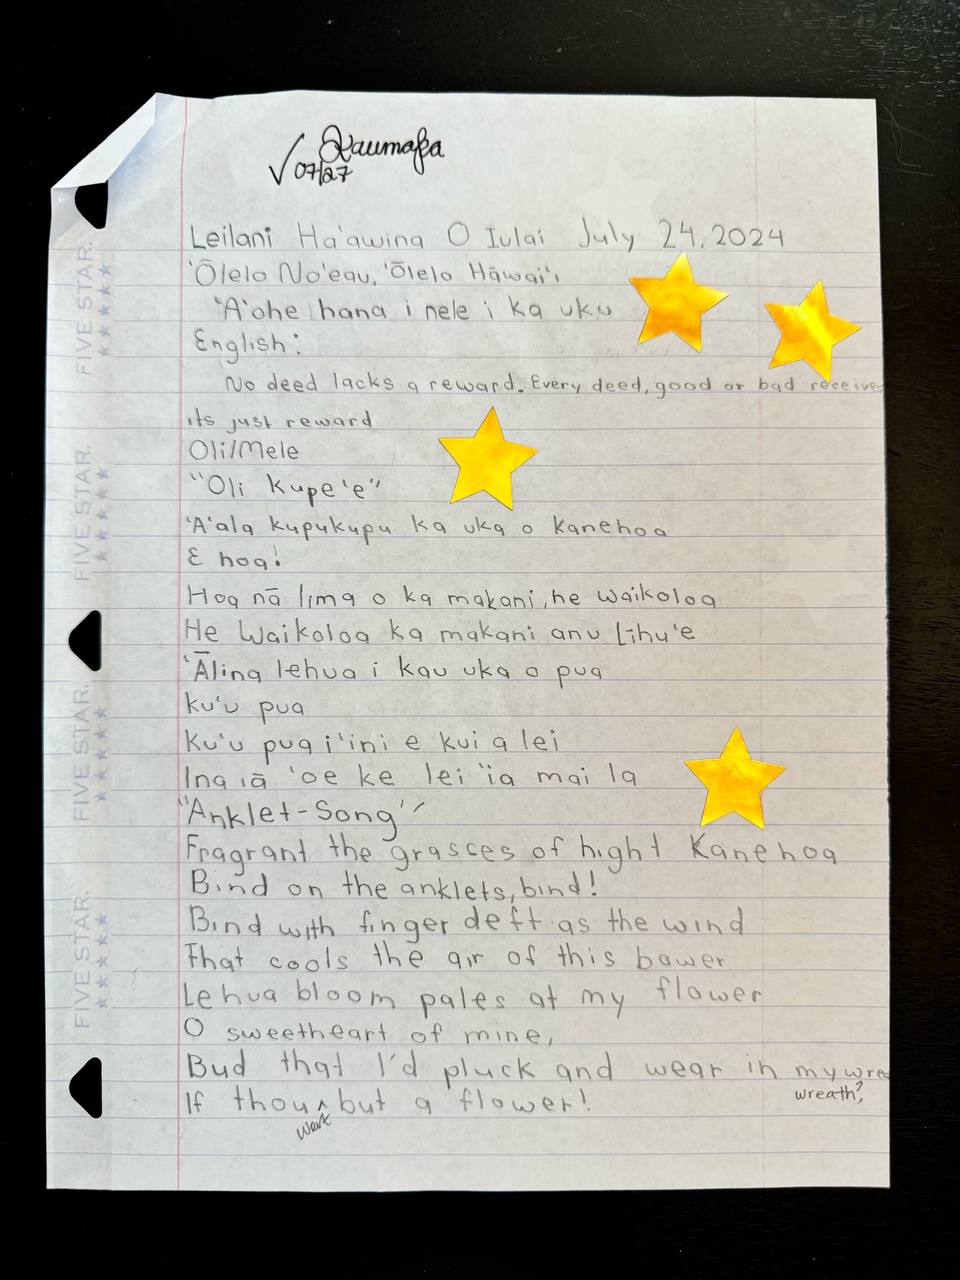 √ Kaumafa
07/27
Leilani Ha'awina O Iulai July 24, 2024
'Ōlelo No'eau, 'Ōlelo Hāwai'i
'A'ohe hana i nele i ka uku
English:
No deed lacks a reward. Every deed, good or bad receives
its just reward
Oli/Mele
"Oli Kupe'e"
'A'ala kupukupu ka uka o kanehoa
E hoa!
Hoa nā lima o ka makani, he waikoloa
He Waikoloa ka makani anu Līhu'e
'Ālina lehua i kau uka o pua
ku'u pua
Ku'u pua i'ini e kui a lei
Ina iā 'oe ke lei 'ia mai la
"Anklet-Song"
Fragrant the grasces of hight Kanehoa
Bind on the anklets, bind!
Bind with finger deft as the wind
That cools the air of this bower
Lehua bloom pales at my flower
O sweetheart of mine,
Bud that I'd pluck and wear in my wrea
wreath?,
If thou ^ but a flower!
wert
FIVE STAR.
FIVE STAR.
FIVE STAR.
FIVE STAR.